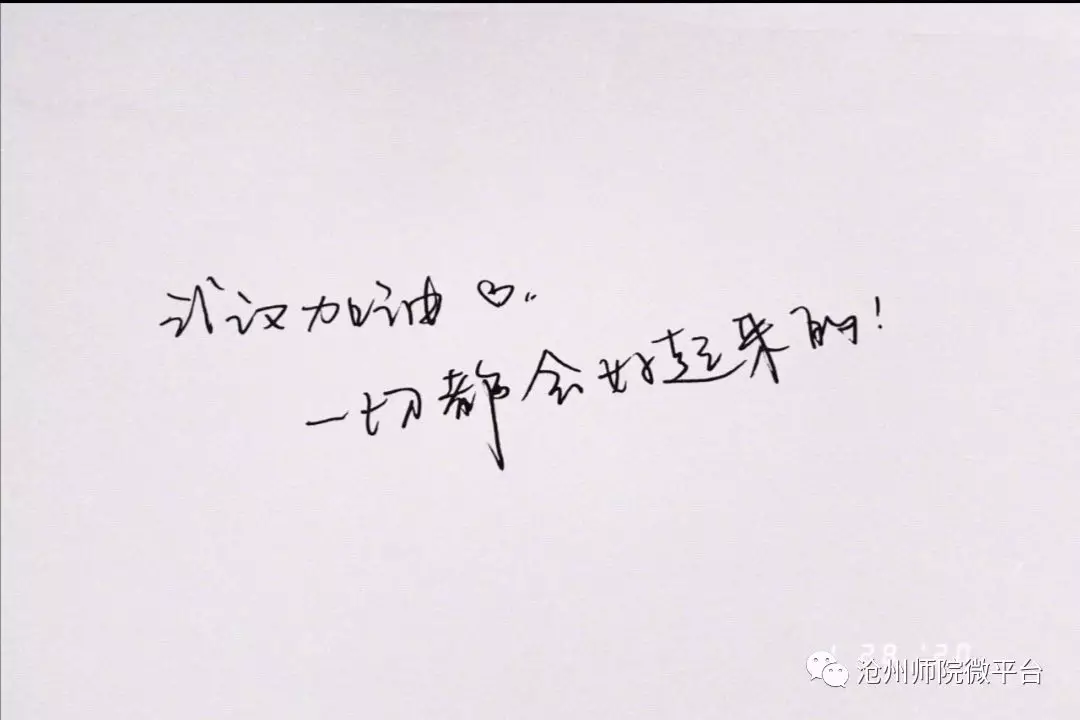 武汉加油♡..
一切都会好起来的!
28 '20
沧州师院微平台